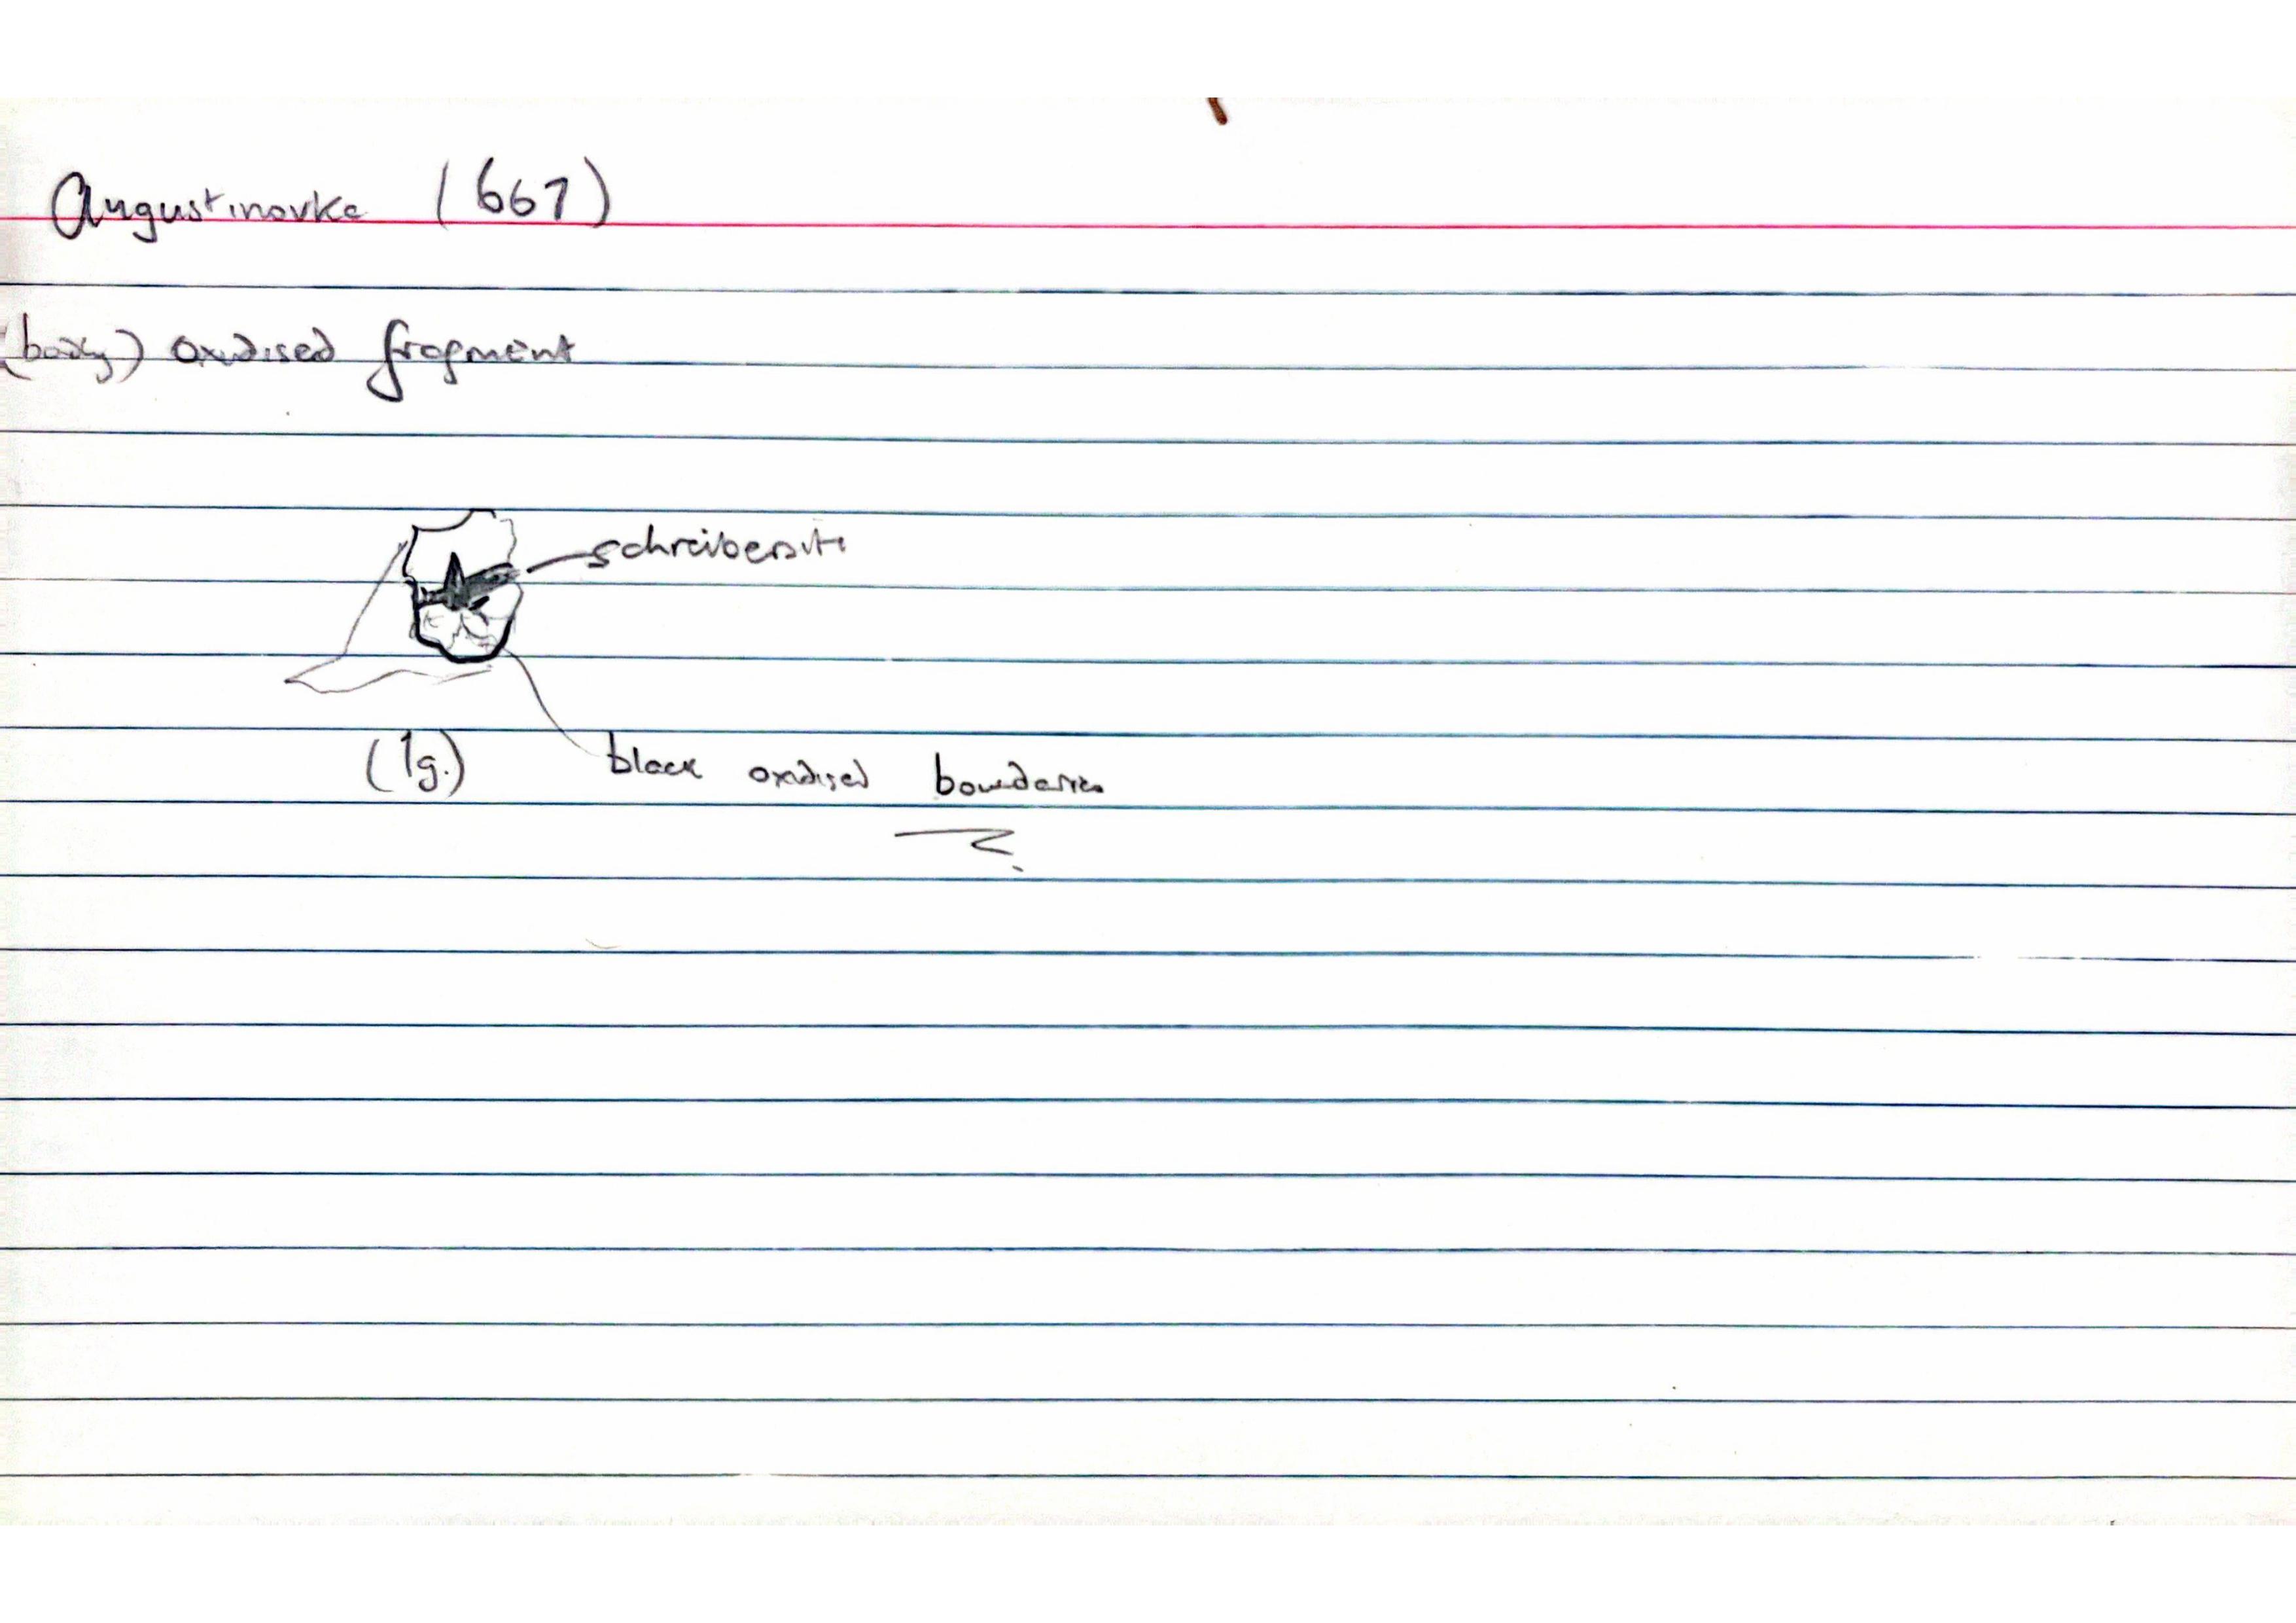 Augustinovka (667)
(badly) oxidised fragment
schreibersite
(1g.) black oxidised boundaries